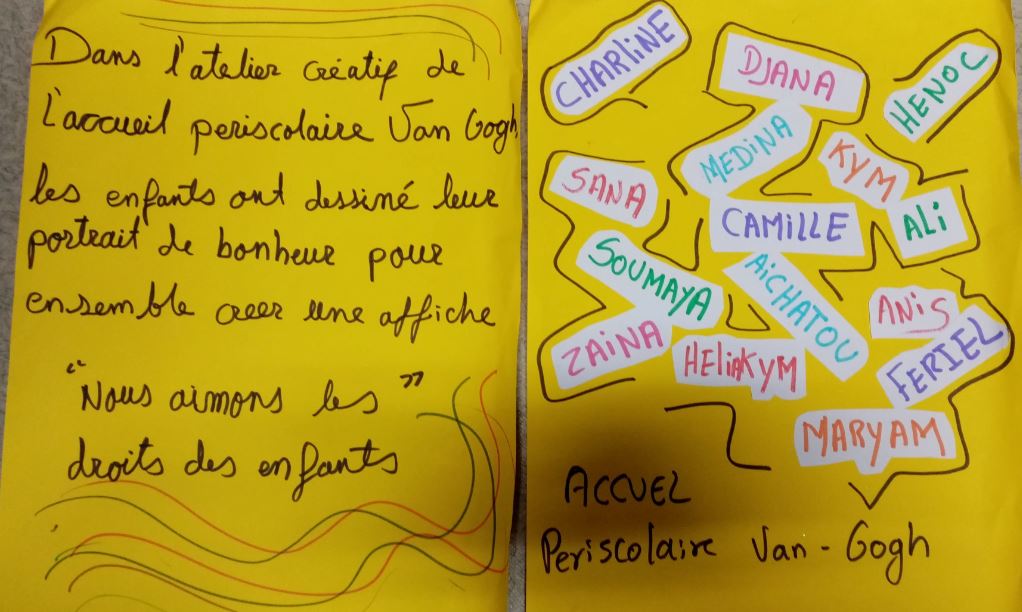 Dans l'atelier créatif de
l'accueil periscolaire Van Gogh,
les enfants ont dessiné leur
portrait de bonheur pour
ensemble creer une affiche
"Nous aimons les"
droits des enfants
CHARLINE
DJANA
HENOC
MEDINA
KYM
SANA
CAMILLE
ALI
SOUMAYA
AICHATOU
ANIS
ZAINA
HELIAKYM
FERIEL
MARYAM
ACCUEL
Periscolaire Van-Gogh